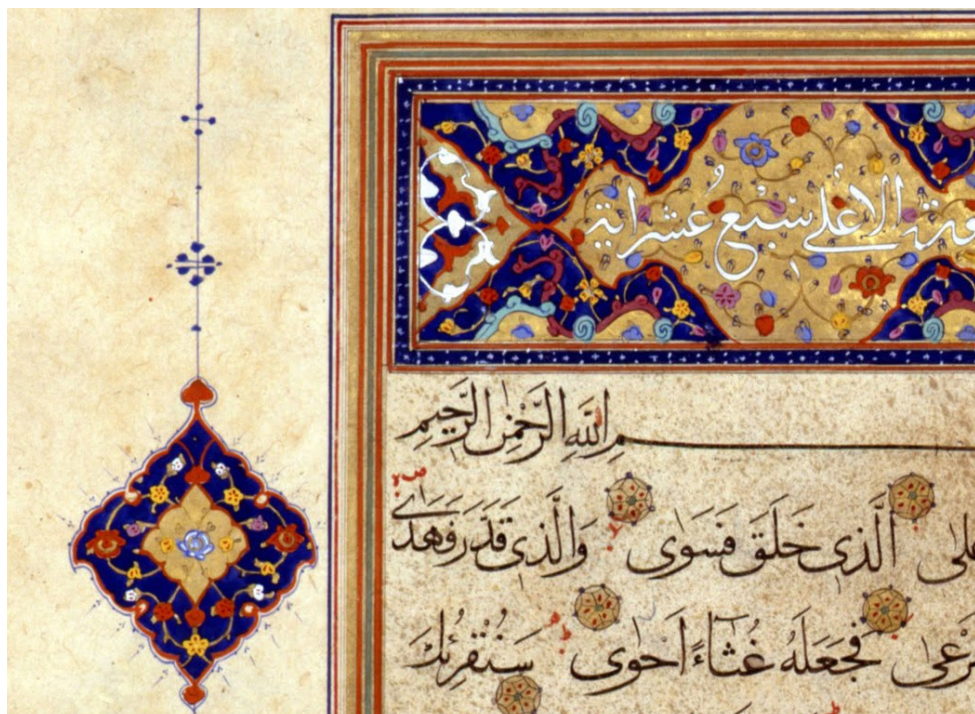 الاعلى سبع عشر اية
مِ اللَّهِ الرَّحْمٰنِ الرَّحِيمِ
الَّذِى خَلَقَ فَسَوٰى وَالَّذِى قَدَّرَ فَهَدٰى
فَجَعَلَهُ غُثَاءً اَحْوٰى سَنُقْرِئُكَ